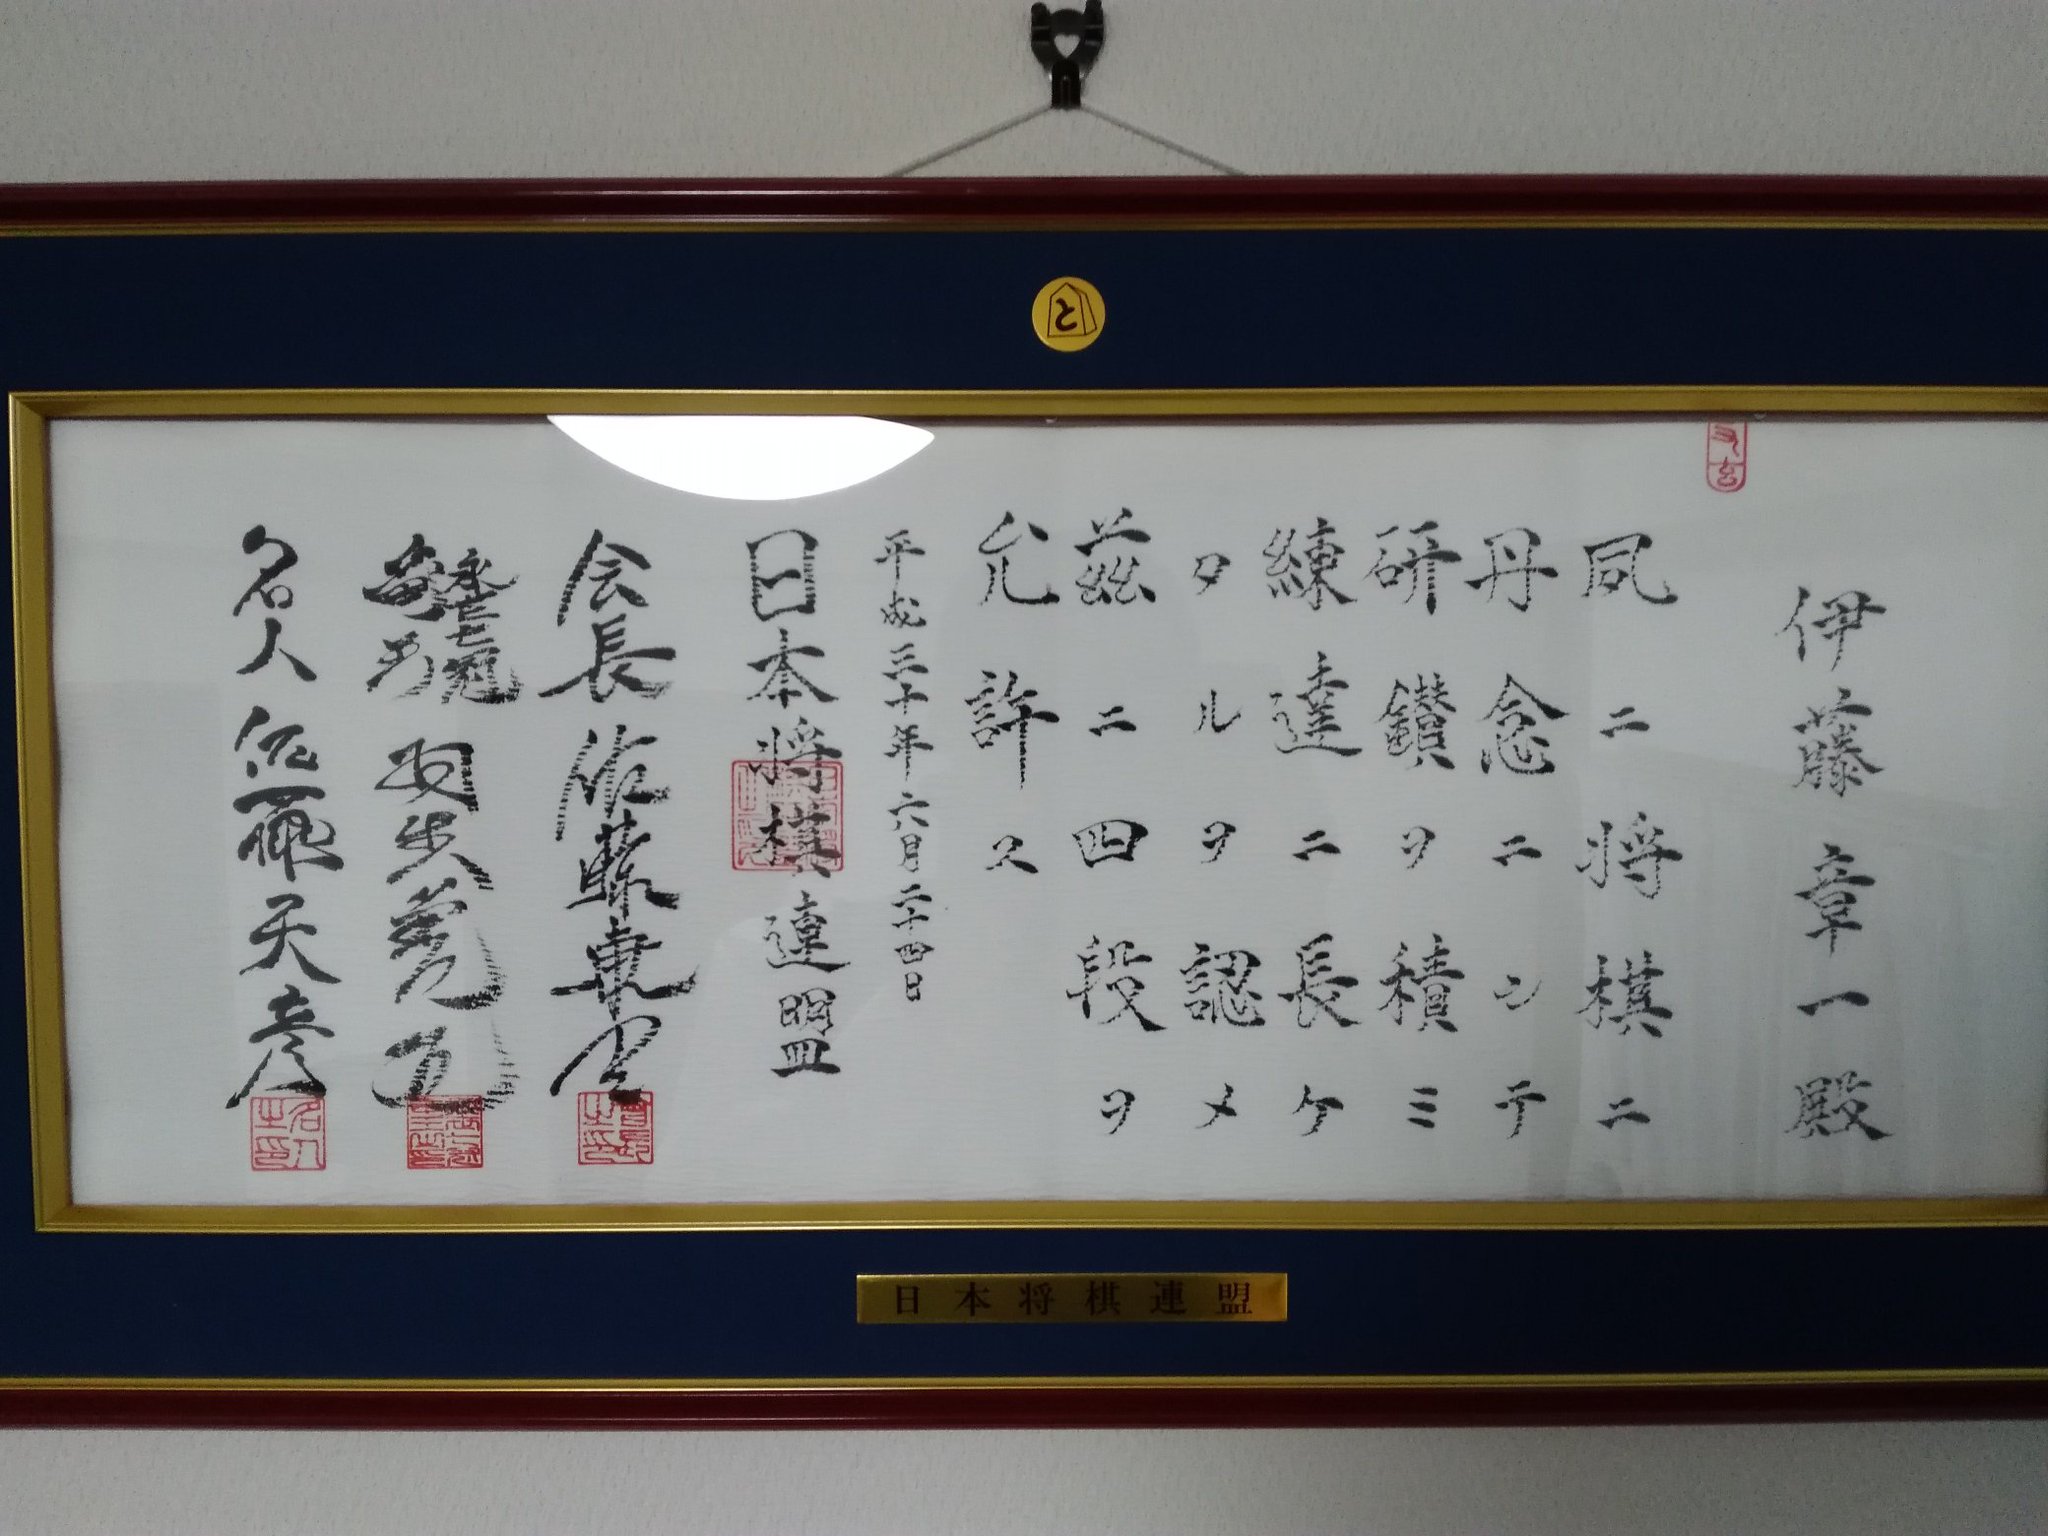 と
伊藤章一殿
夙ニ将棋ニ
丹念ニシテ
研鑽ヲ積ミ
練達ニ長ケ
タルヲ認メ
茲ニ四段ヲ
允許ス
平成三十年六月二十四日
日本将棋連盟
会長 佐藤康光
名人 佐藤天彦
日本将棋連盟